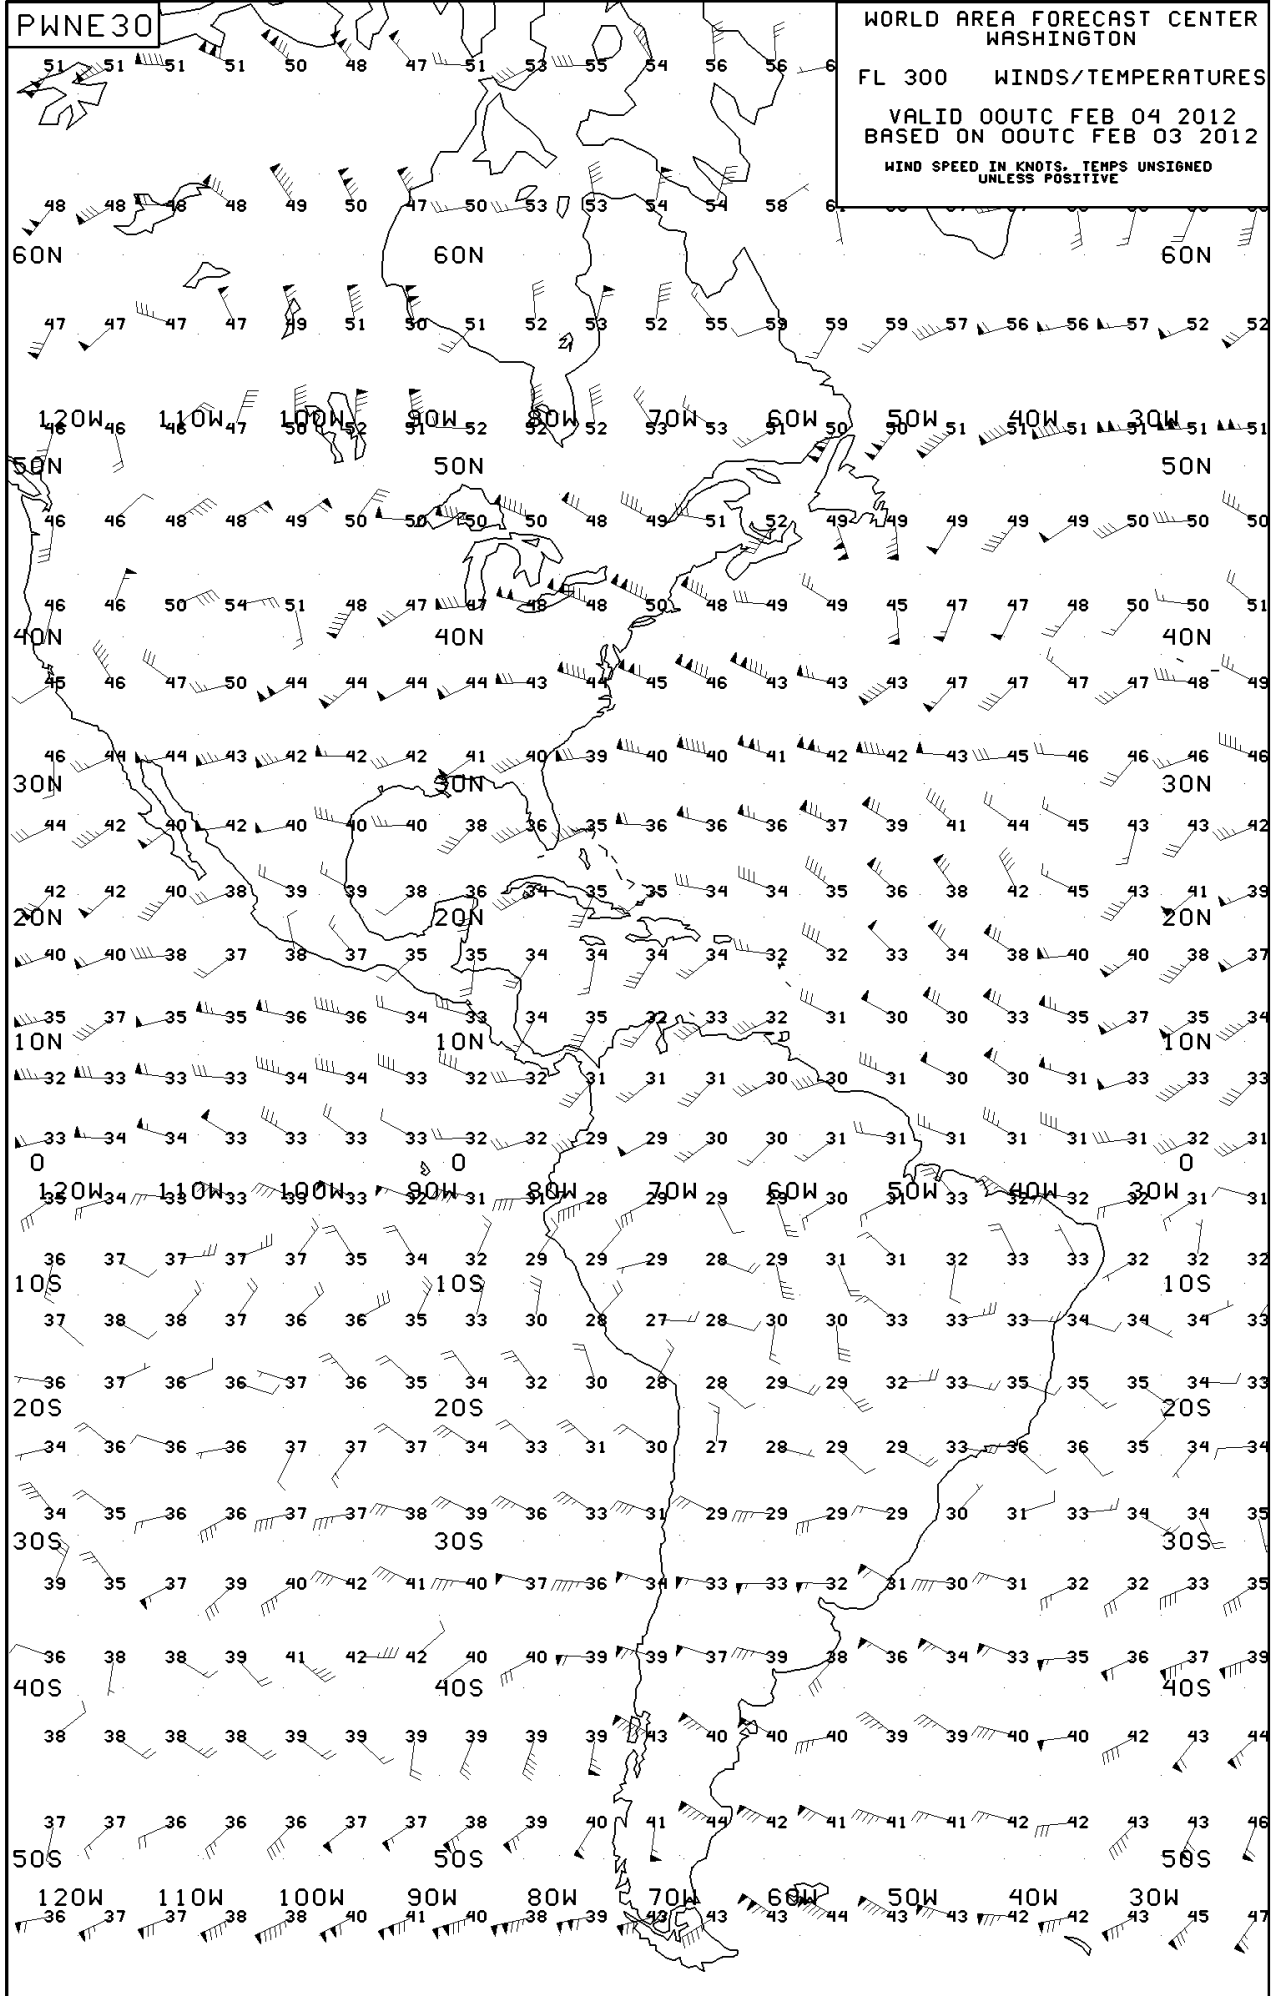 PWNE30
WORLD AREA FORECAST CENTER
WASHINGTON
FL 300 WINDS/TEMPERATURES
VALID 00UTC FEB 04 2012
BASED ON 00UTC FEB 03 2012
WIND SPEED IN KNOTS, TEMPS UNSIGNED
UNLESS POSITIVE
51 51 51 51 50 48 47 51 53 55 54 56 56
48 48 48 48 49 50 47 50 53 53 54 54 58
60N 60N 60N
47 47 47 47 49 51 50 51 52 53 52 55 59 59 59 57 56 56 57 52 52
120W 110W 100W 90W 80W 70W 60W 50W 40W 30W
46 46 46 47 50 52 51 52 52 52 53 53 51 50 50 51 51 51 51 51 51
50N 50N 50N
46 46 48 48 49 50 50 50 50 48 49 51 52 49 49 49 49 49 50 50 50
46 46 50 54 51 48 47 47 48 48 50 48 49 49 45 47 47 48 50 50 51
40N 40N 40N
45 46 47 50 44 44 44 44 43 44 45 46 43 43 43 47 47 47 47 48 49
46 44 44 43 42 42 42 41 40 39 40 40 41 42 42 43 45 46 46 46 46
30N 30N 30N
44 42 40 42 40 40 40 38 36 35 36 36 36 37 39 41 44 45 43 43 42
42 42 40 38 39 39 38 36 34 35 35 34 34 35 36 38 42 45 43 41 39
20N 20N 20N
40 40 38 37 38 37 35 35 34 34 34 34 32 32 33 34 38 40 40 38 37
35 37 35 35 36 36 34 33 34 35 32 33 32 31 30 30 33 35 37 35 34
10N 10N 10N
32 33 33 33 34 34 33 32 32 31 31 31 30 30 31 30 30 31 33 33 33
33 34 34 33 33 33 33 32 32 29 29 30 30 31 31 31 31 31 31 32 31
0 0 0
120W 110W 100W 90W 80W 70W 60W 50W 40W 30W
35 34 33 33 33 33 32 31 31 28 29 29 29 30 31 33 32 32 32 31 31
36 37 37 37 37 35 34 32 29 29 29 28 29 31 31 32 33 33 32 32 32
10S 10S 10S
37 38 38 37 36 36 35 33 30 28 27 28 30 30 33 33 33 34 34 34 33
36 37 36 36 37 36 35 34 32 30 28 28 29 29 32 33 35 35 35 34 33
20S 20S 20S
34 36 36 36 37 37 37 34 33 31 30 27 28 29 29 33 36 36 35 34 34
34 35 36 36 37 37 38 39 36 33 31 29 29 29 29 30 31 33 34 34 35
30S 30S 30S
39 35 37 39 40 42 41 40 37 36 34 33 33 32 31 30 31 32 32 33 35
36 38 38 39 41 42 42 40 40 39 39 37 39 38 36 34 33 35 36 37 39
40S 40S 40S
38 38 38 38 39 39 39 39 39 39 43 40 40 40 39 39 40 40 42 43 44
37 37 36 36 36 37 37 38 39 40 41 44 42 41 41 41 42 42 43 43 46
50S 50S 50S
120W 110W 100W 90W 80W 70W 60W 50W 40W 30W
36 37 37 38 38 40 41 40 38 39 43 43 43 44 43 43 42 42 43 45 47